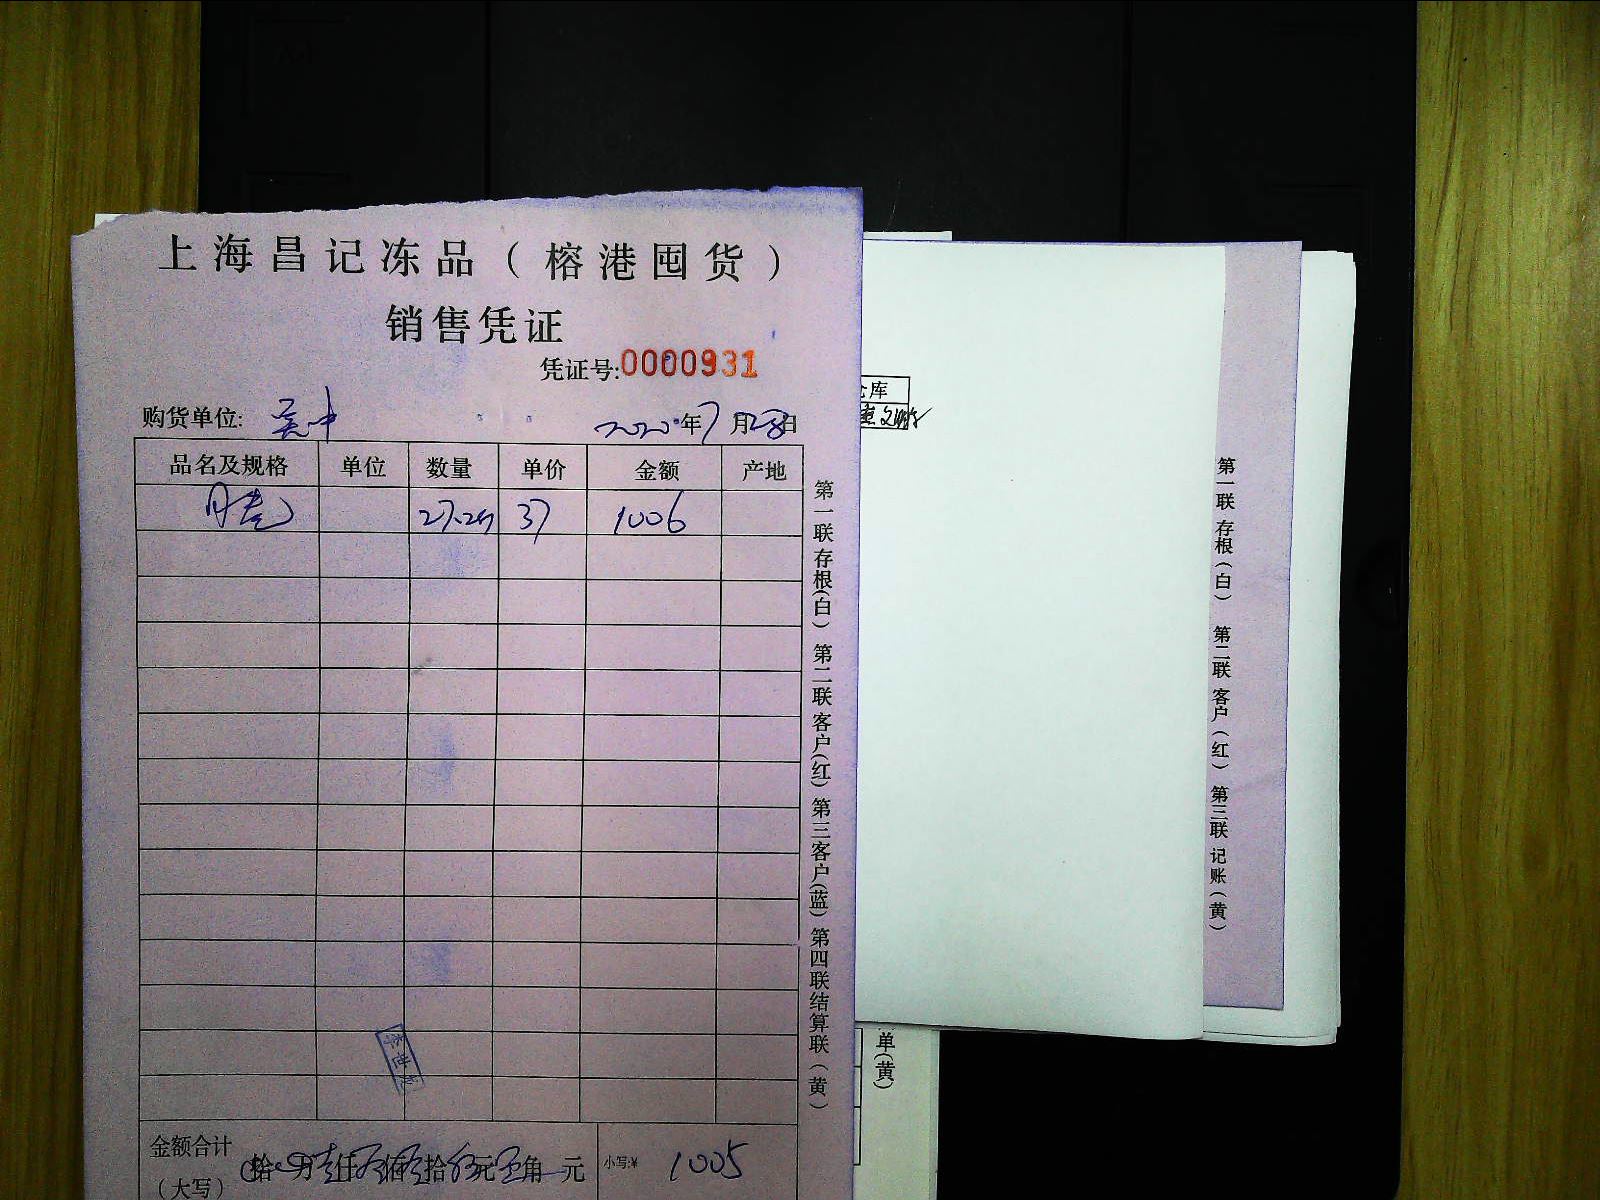 上海昌记冻品（榕港囤货）
销售凭证
凭证号:0000931
购货单位: 吴中 2020年7月28日
品名及规格 单位 数量 单价 金额 产地
37 1006
金额合计
（大写） 拾 万 仟 佰 拾 元 角 元 小写:¥ 1005
第一联存根(白) 第二联客户(红) 第三客户(蓝) 第四联结算联（黄）
仓库
第一联 存根（白） 第二联 客户（红） 第三联 记账（黄）
单(黄)